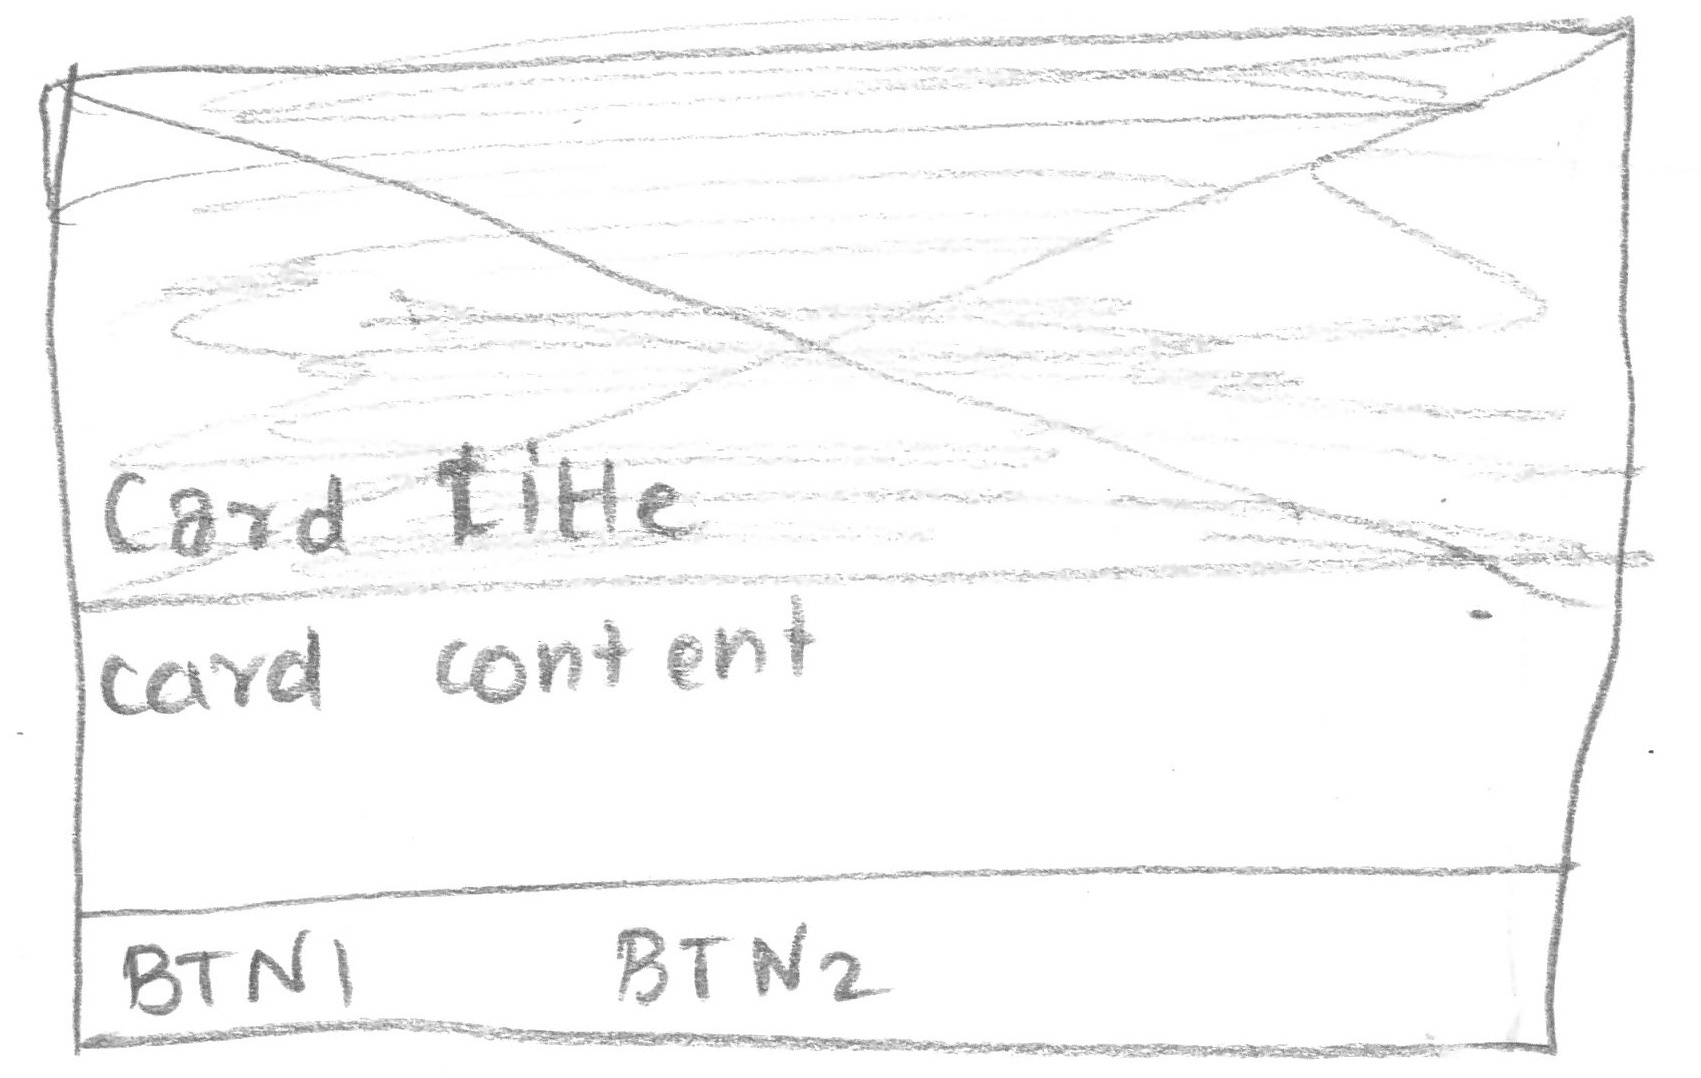 Card Title
card content
BTN1 BTN2